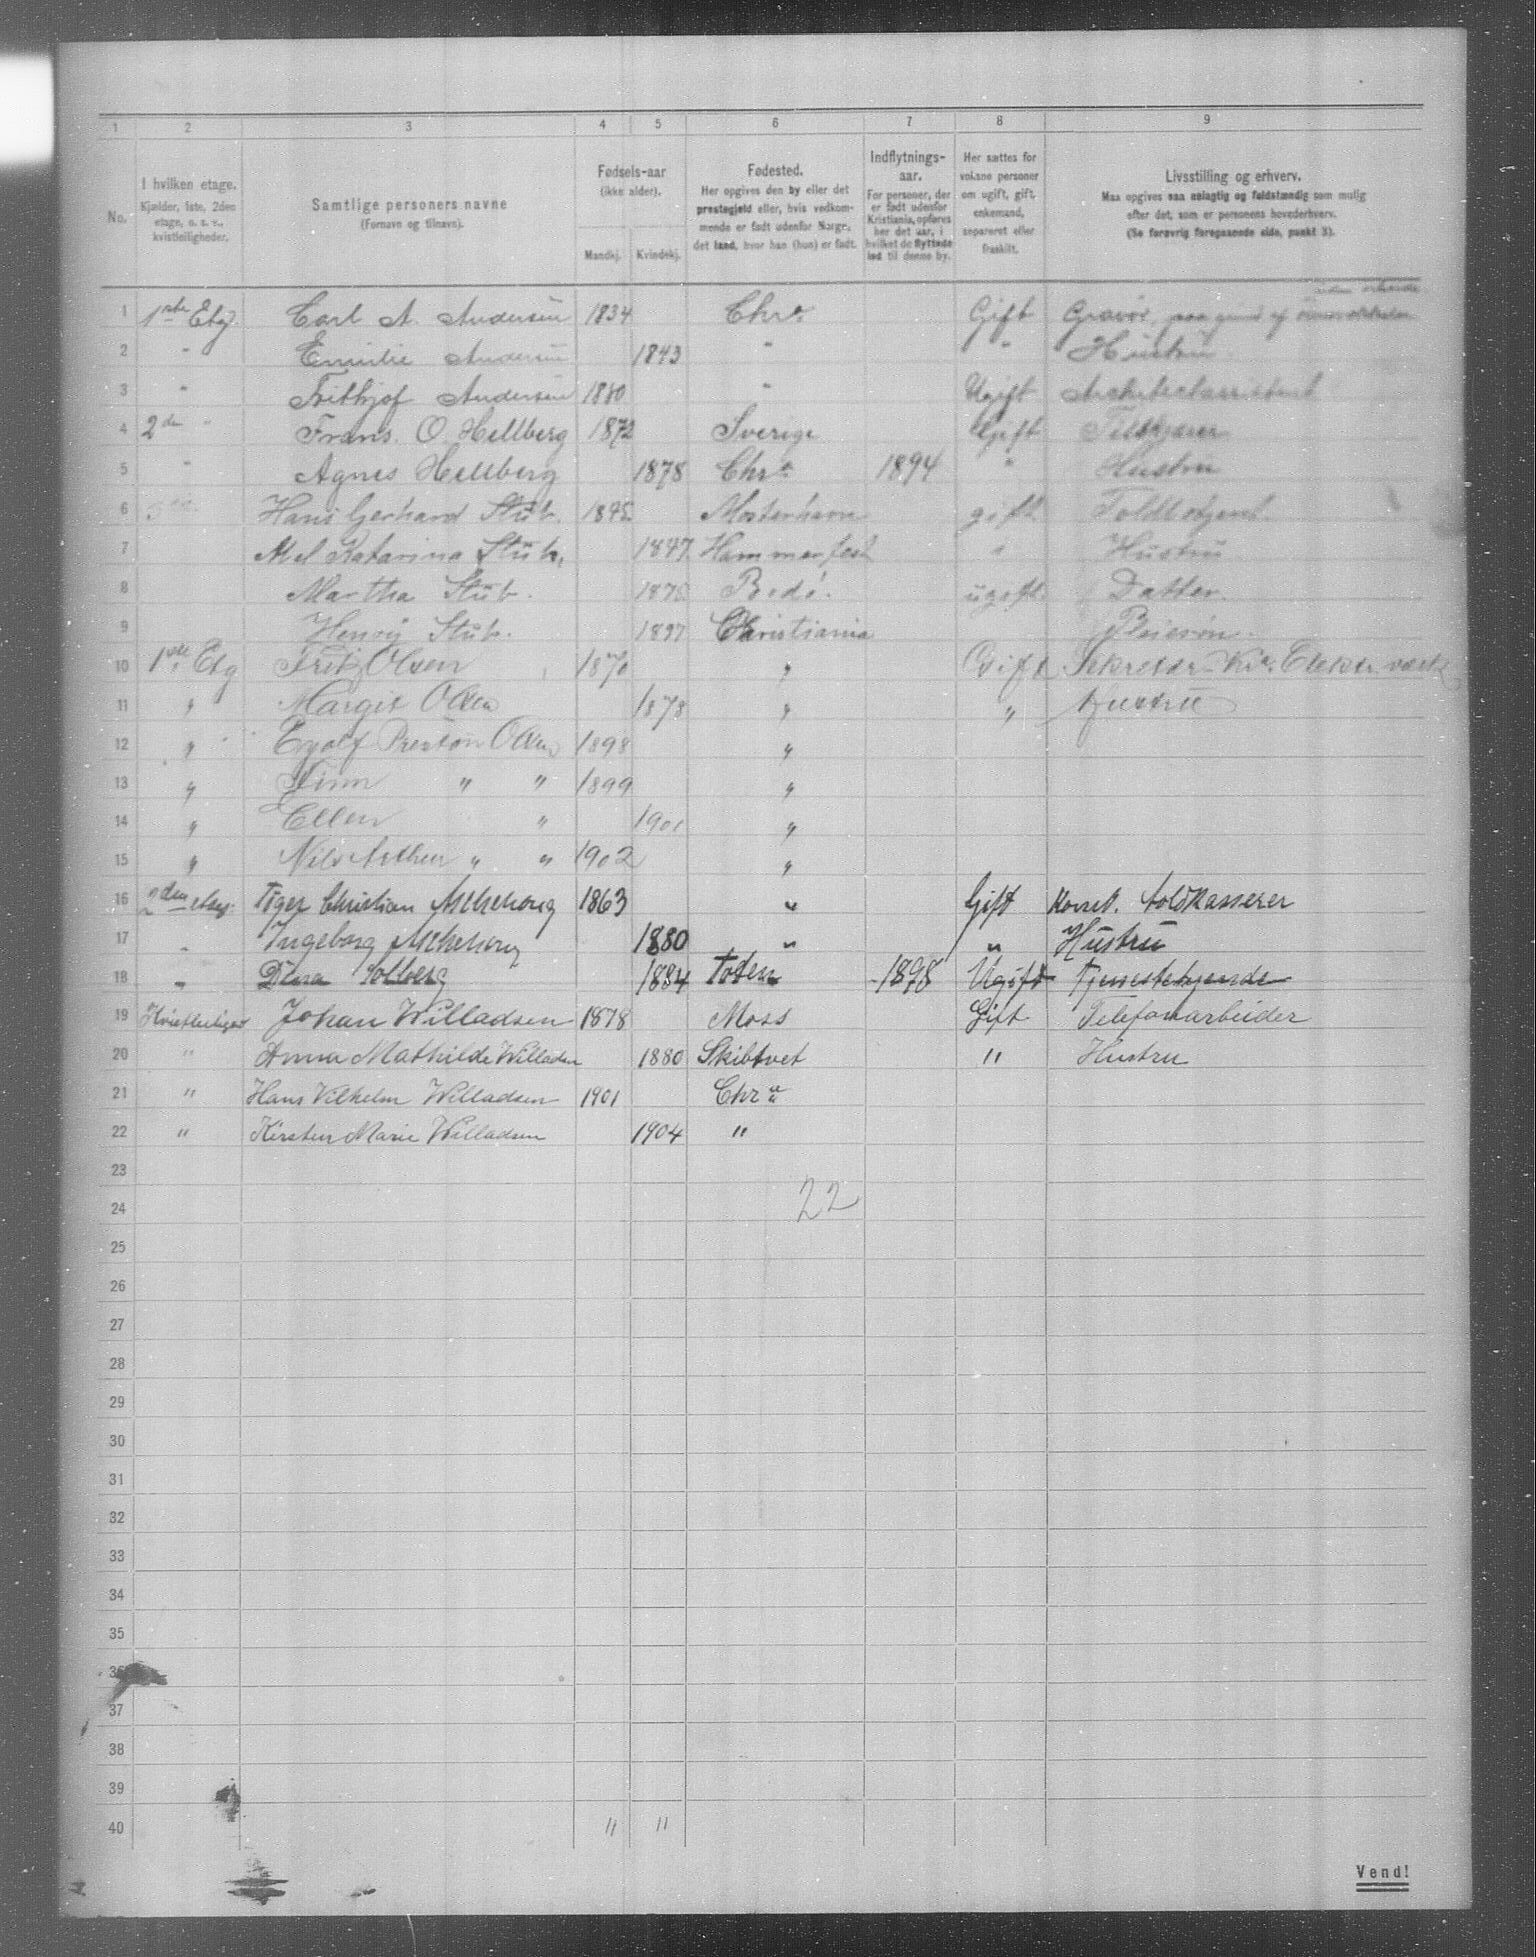 1 2 3 4 5 6 7 8 9
No.
I hvilken etage.
Kjælder, 1ste, 2den
etage, o. s. v.,
kvistleiligheder.
Samtlige personers navne
(Fornavn og tilnavn).
Fødsels-aar
(ikke alder).
Mandkj. Kvindekj.
Fødested.
Her opgives den by eller det
prestegjeld eller, hvis vedkom-
mende er født udenfor Norge,
det land, hvor han (hun) er født.
Indflytnings-
aar.
For personer, der
er født udenfor
Kristiania, opføres
her det aar, i
hvilket de flyttede
ind til denne by.
Her sættes for
voksne personer
om ugift, gift,
enkemand,
separeret eller
fraskilt.
Livsstilling og erhverv.
Maa opgives saa nøiagtig og fuldstændig som mulig
efter det, som er personens hovederhverv.
(Se forøvrig foregaaende side, punkt 3).
uden arbeide
1 1ste Etg. Carl A. Andersen 1834 Chr.a Gift Gravør, paa grund af
2 " Emilie Andersen 1843 " " Hustru
3 " Frithjof Andersen 1880 " Ugift Arkitektassistent
4 2den " Frans. O. Hellberg 1872 Sverige Gift
5 " Agnes Hellberg 1878 Chr.a 1894 " Hustru
6 Hans Gerhard Stub. 1845 gift Toldbetjent.
7 Katarina Stub. 1847. Hammerfest " Hustru
8 Martha Stub. 1875 Bodø. ugift. Datter.
9 Henry Stub. 1897 Christiania Pleiesøn.
10 1ste Etg Fritz Olsen 1870 " Gift Sekretær Kr.a Elektr. værk
11 " Margit Olsen 1878 " " Hustru
12 " Eyolf Preston Olsen 1898 "
13 " Finn " " 1899 "
14 " Ellen " 1901 "
15 " Nils Arthur " " 1902 "
16 2den etag. Tøger Christian Aschehoug 1863 " Gift Konst. Toldkasserer
17 " Ingeborg Aschehoug 1880 " " Hustru
18 " Dina Solberg 1884 Toten 1898 Ugift Tjenestepige
19 Kvistleilighed Johan Willadsen 1878 Moss Gift Telefonarbeider
20 " Anna Mathilde Willadsen 1880 Skibtvet " Hustru
21 " Hans Vilhelm Willadsen 1901 Chr.a
22 " Kirsten Marie Willadsen 1904 "
23
24 22
25
26
27
28
29
30
31
32
33
34
35
36
37
38
39
40 " "
Vend!